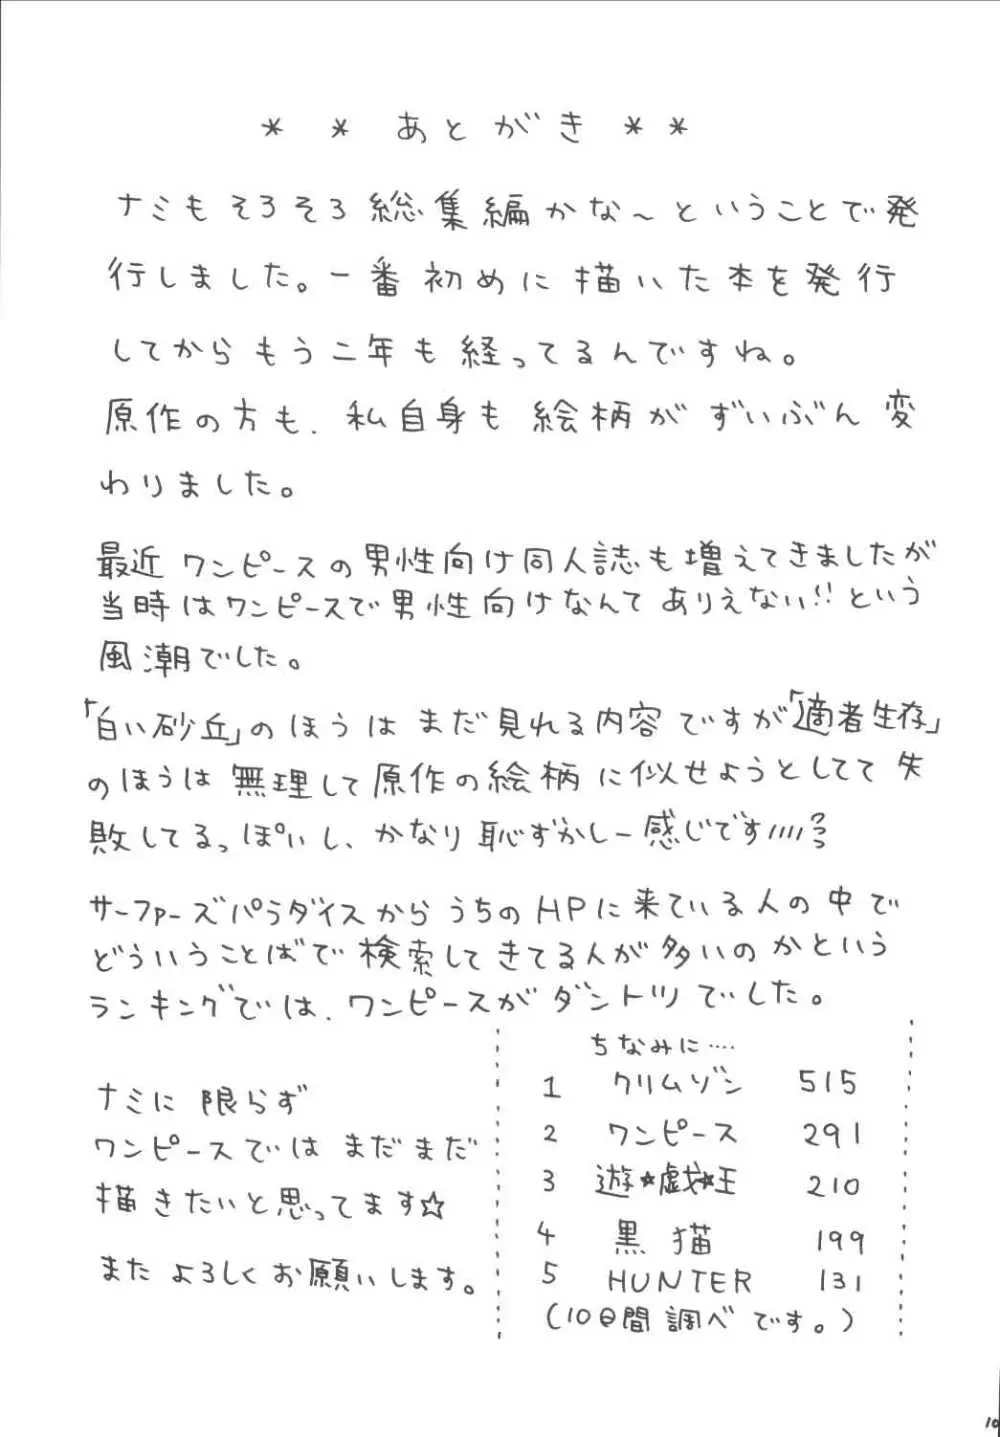 ** あとがき **
ナミもそろそろ総集編かな～ということで発
行しました。一番初めに描いた本を発行
してからもう二年も経ってるんですね。
原作の方も、私自身も絵柄がずいぶん変
わりました。
最近ワンピースの男性向け同人誌も増えてきましたが
当時はワンピースで男性向けなんてありえない!!という
風潮でした。
「白い砂丘」のほうはまだ見れる内容ですが「適者生存」
のほうは無理して原作の絵柄に似せようとしてて失
敗してるっぽいし、かなり恥ずかしー感じです////
サーファーズパラダイスからうちのHPに来ている人の中で
どういうことばで検索してきてる人が多いのかという
ランキングでは、ワンピースがダントツでした。
ナミに限らず
ワンピースではまだまだ
描きたいと思ってます☆
またよろしくお願いします。
ちなみに‥‥
1 クリムゾン 515
2 ワンピース 291
3 遊☆戯☆王 210
4 黒猫 199
5 HUNTER 131
(10日間調べです。)